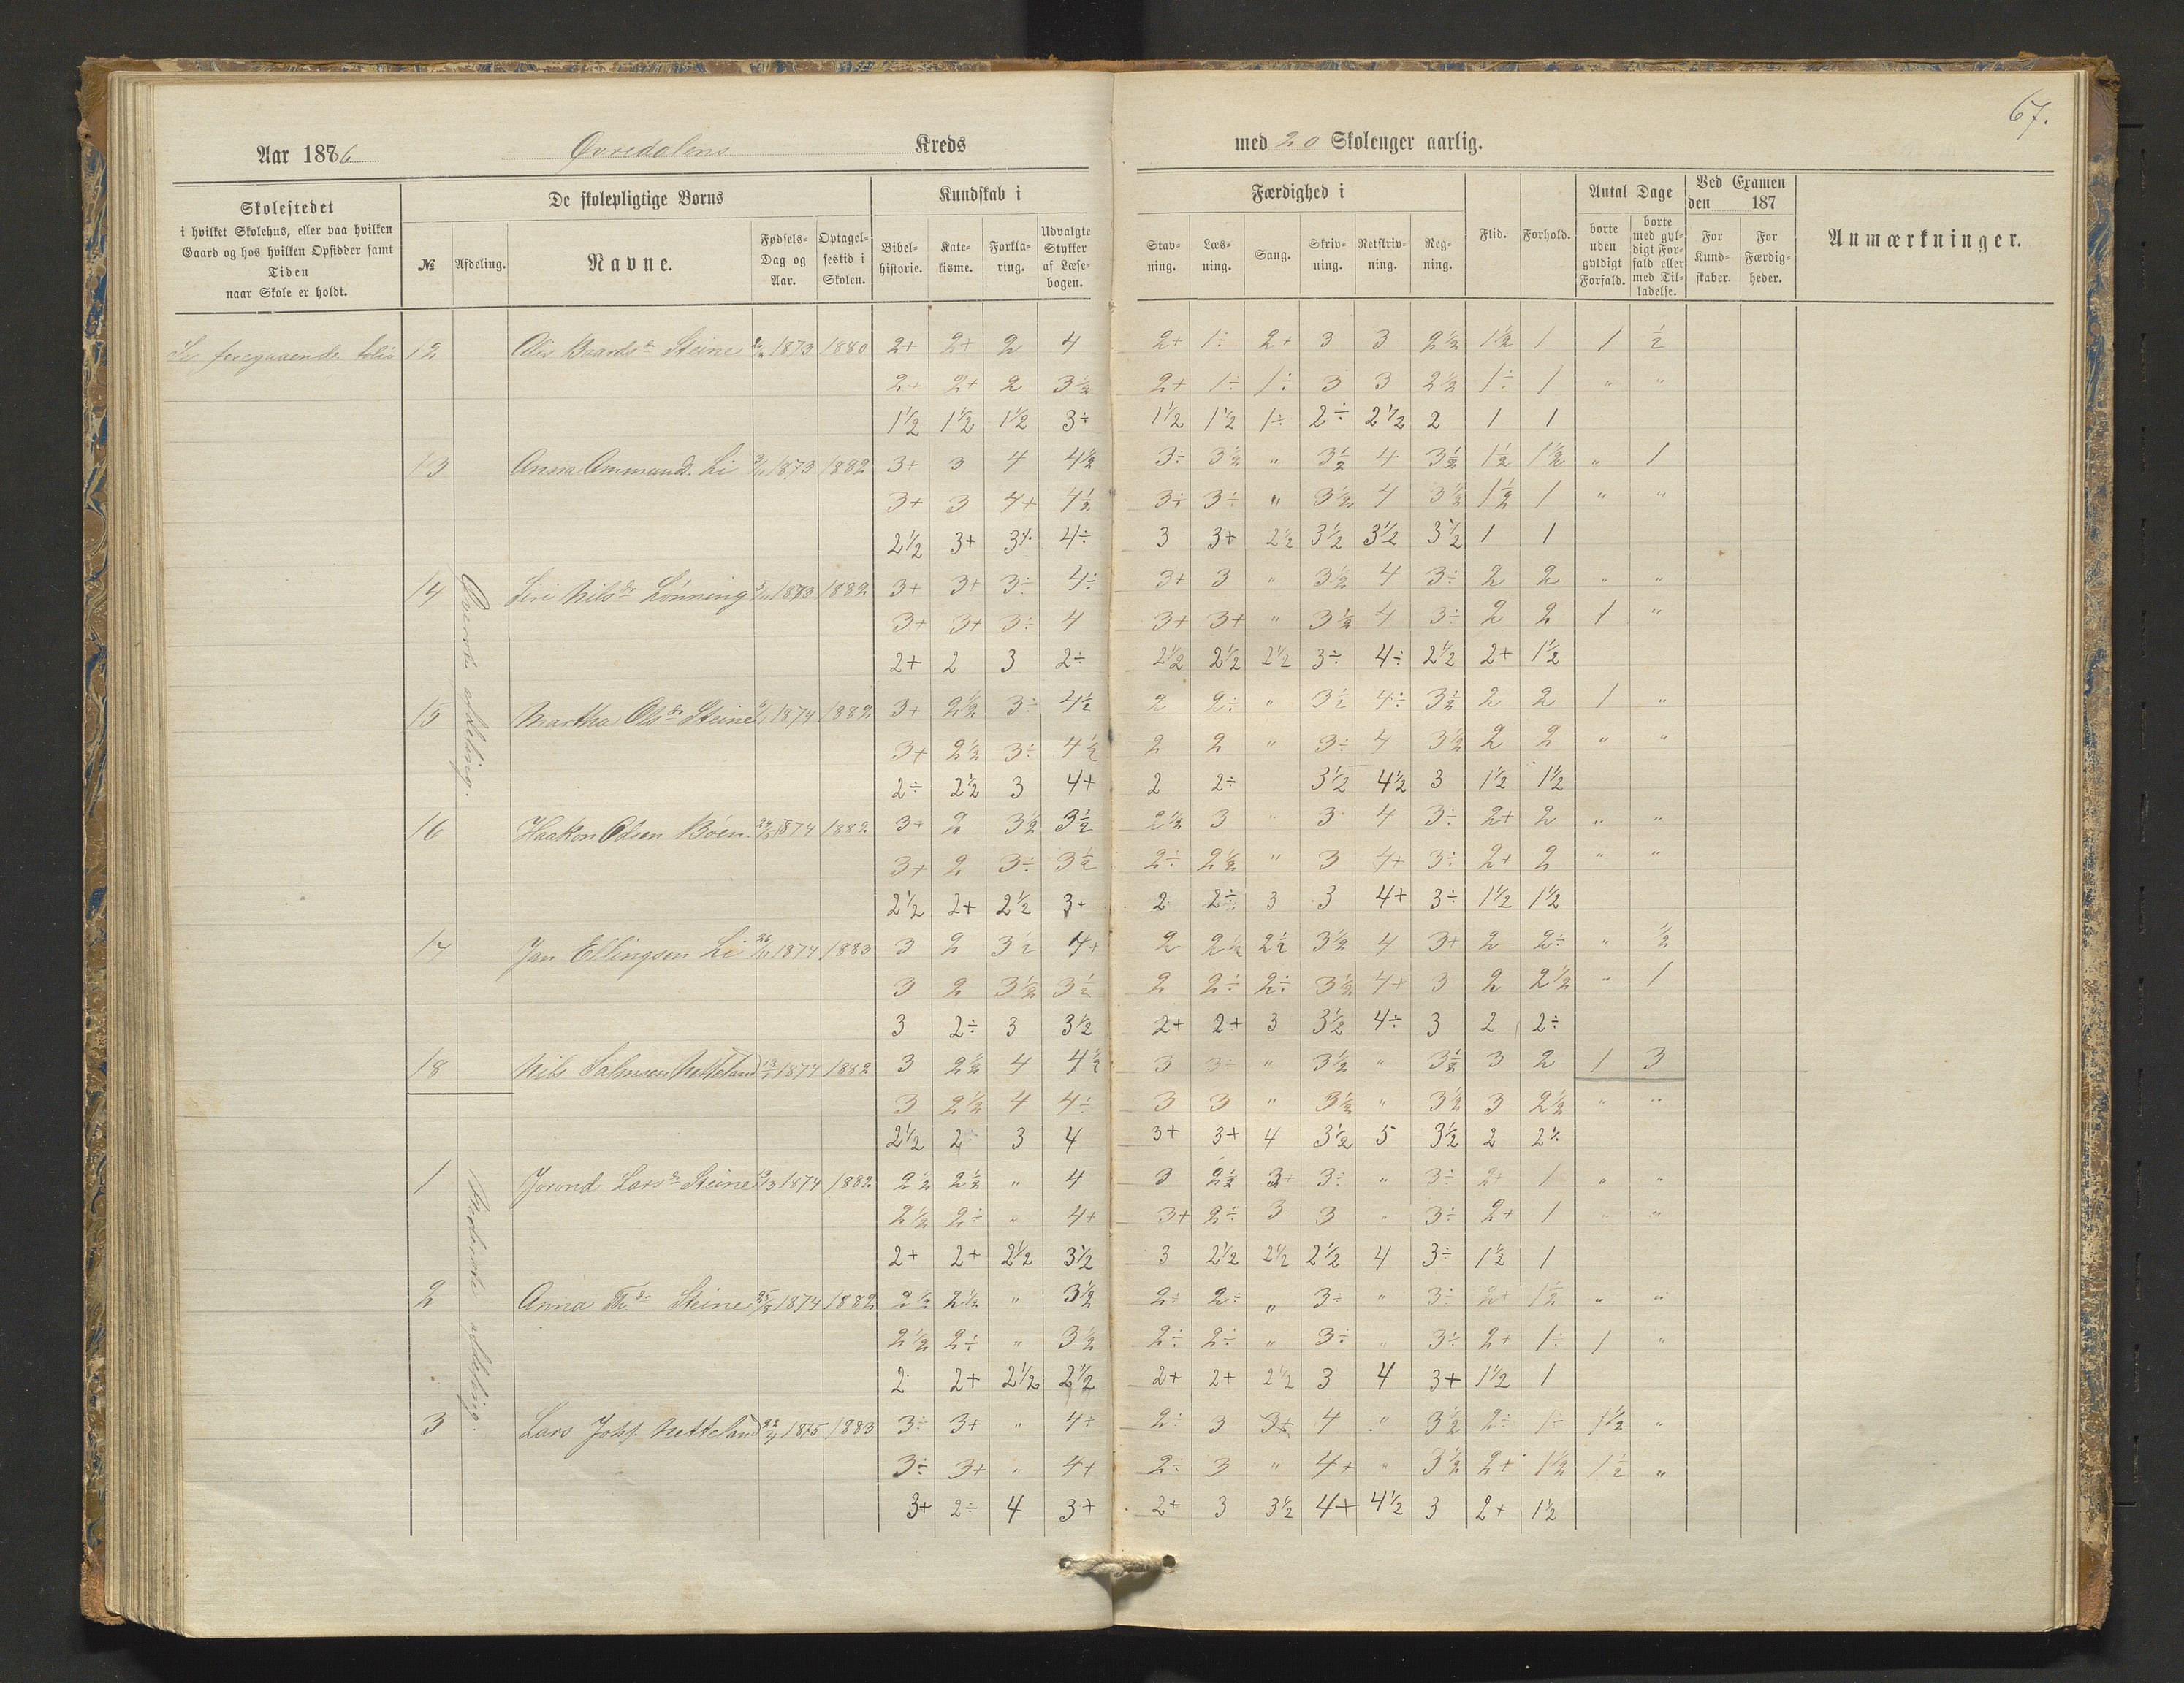 67.
Aar 1886 Øvredalens Kreds med 20 Skoleuger aarlig.
Skolestedet i hvilket Skolehus, eller paa hvilken Gaard og hos hvilken Opsidder samt Tiden naar Skole er holdt.
De skolepligtige Børns
№ Afdeling. Navne. Fødsels-Dag og Aar. Optagel-sestid i Skolen.
Kundskab i
Bibel-historie. Kate-kisme. Forkla-ring. Udvalgte Stykker af Læse-bogen.
Færdighed i
Stav-ning. Læs-ning. Sang. Skriv-ning. Retskriv-ning. Reg-ning.
Flid. Forhold.
Antal Dage
borte uden gyldigt Forfald. borte med gyl-digt For-fald eller med Til-ladelse.
Ved Examen den 187
For Kund-skaber. For Færdig-heder.
Anmærkninger.
Se foregaaende folio 12 Steine 1873 1880 2+ 2+ 2 4 2+ 1÷ 2+ 3 3 2½ 1½ 1 1 ½
2+ 2+ 2 3½ 2+ 1÷ 1÷ 3 3 2½ 1÷ 1 " "
1½ 1½ 1½ 3÷ 1½ 1½ 1÷ 2÷ 2½ 2 1 1
13 Anna Ammund. Li 1873 1882 3+ 3 4 4½ 3÷ 3½ " 3½ 4 3½ 1½ 1½ " 1
3+ 3 4+ 4½ 3÷ 3÷ " 3½ 4 3½ 1½ 1 " "
2½ 3+ 3÷ 4÷ 3 3+ 2½ 3½ 3½ 3½ 1 1
Øverste afdeling.
14 Siri Nilsdr Lønning 1873 1882 3+ 3+ 3÷ 4÷ 3+ 3 " 3½ 4 3÷ 2 2 " "
3+ 3+ 3÷ 4 3+ 3+ " 3½ 4 3÷ 2 2 1 "
2+ 2 3 2÷ 2½ 2½ 2½ 3÷ 4÷ 2½ 2+ 1½
15 Martha Olsdr Steine 1874 1882 3+ 2½ 3÷ 4½ 2 2÷ " 3½ 4÷ 3½ 2 2 1 "
3+ 2½ 3÷ 4½ 2 2 " 3÷ 4 3½ 2 2 " "
2÷ 2½ 3 4+ 2 2÷ 3½ 4½ 3 1½ 1½
16 Haakon Odsen Bøen 1874 1882 3+ 2 3½ 3½ 2½ 3 " 3 4 3÷ 2+ 2 " "
3+ 2 3÷ 3½ 2÷ 2½ " 3 4+ 3÷ 2+ 2 " "
2½ 2+ 2½ 3+ 2 2÷ 3 3 4+ 3÷ 1½ 1½
17 Jan Ellingsen Li 26/11 1874 1883 3 2 3½ 4+ 2 2½ 2½ 3½ 4 3+ 2 2÷ " ½
3 2 3½ 3½ 2 2÷ 2÷ 3½ 4+ 3 2 2½ " 1
3 2÷ 3 3½ 2+ 2+ 3 3½ 4÷ 3 2 2÷
18 Nils Salmsen Netteland 1874 1882 3 2½ 4 4½ 3 3÷ " 3½ " 3½ 3 2 1 3
3 2½ 4 4÷ 3 3 " 3½ " 3½ 3 2½ " "
2½ 2 3 4 3+ 3+ 4 3½ 5 3½ 2 2÷
Nederste afdeling.
1 Jorond Larsdr Steine 1874 1882 2½ 2½ " 4 3 2½ 3+ 3÷ " 3÷ 2+ 1 " "
2½ 2÷ " 4+ 3+ 2÷ 3 3 " 3÷ 2+ 1 " "
2+ 2+ 2½ 3½ 3 2½ 2½ 2½ 4 3÷ 1½ 1
2 Anna Steine 1874 1882 2½ 2½ " 3½ 2÷ 2÷ " 3÷ " 3÷ 2+ 1½ " "
2½ 2÷ " 3½ 2÷ 2÷ " 3÷ " 3÷ 2+ 1÷ 1 "
2 2+ 2½ 2½ 2+ 2+ 2½ 3 4 3+ 1½ 1
3 Lars Johs. Netteland 1875 1883 3÷ 3+ " 4+ 2÷ 3 3+ 4 " 3½ 2÷ 1÷ 1½ "
3÷ 3+ " 4+ 2÷ 3 " 4+ " 3½ 2+ 1½ 1½ "
3+ 2÷ 4 3+ 2+ 3 3½ 4+ 4½ 3 2+ 1½